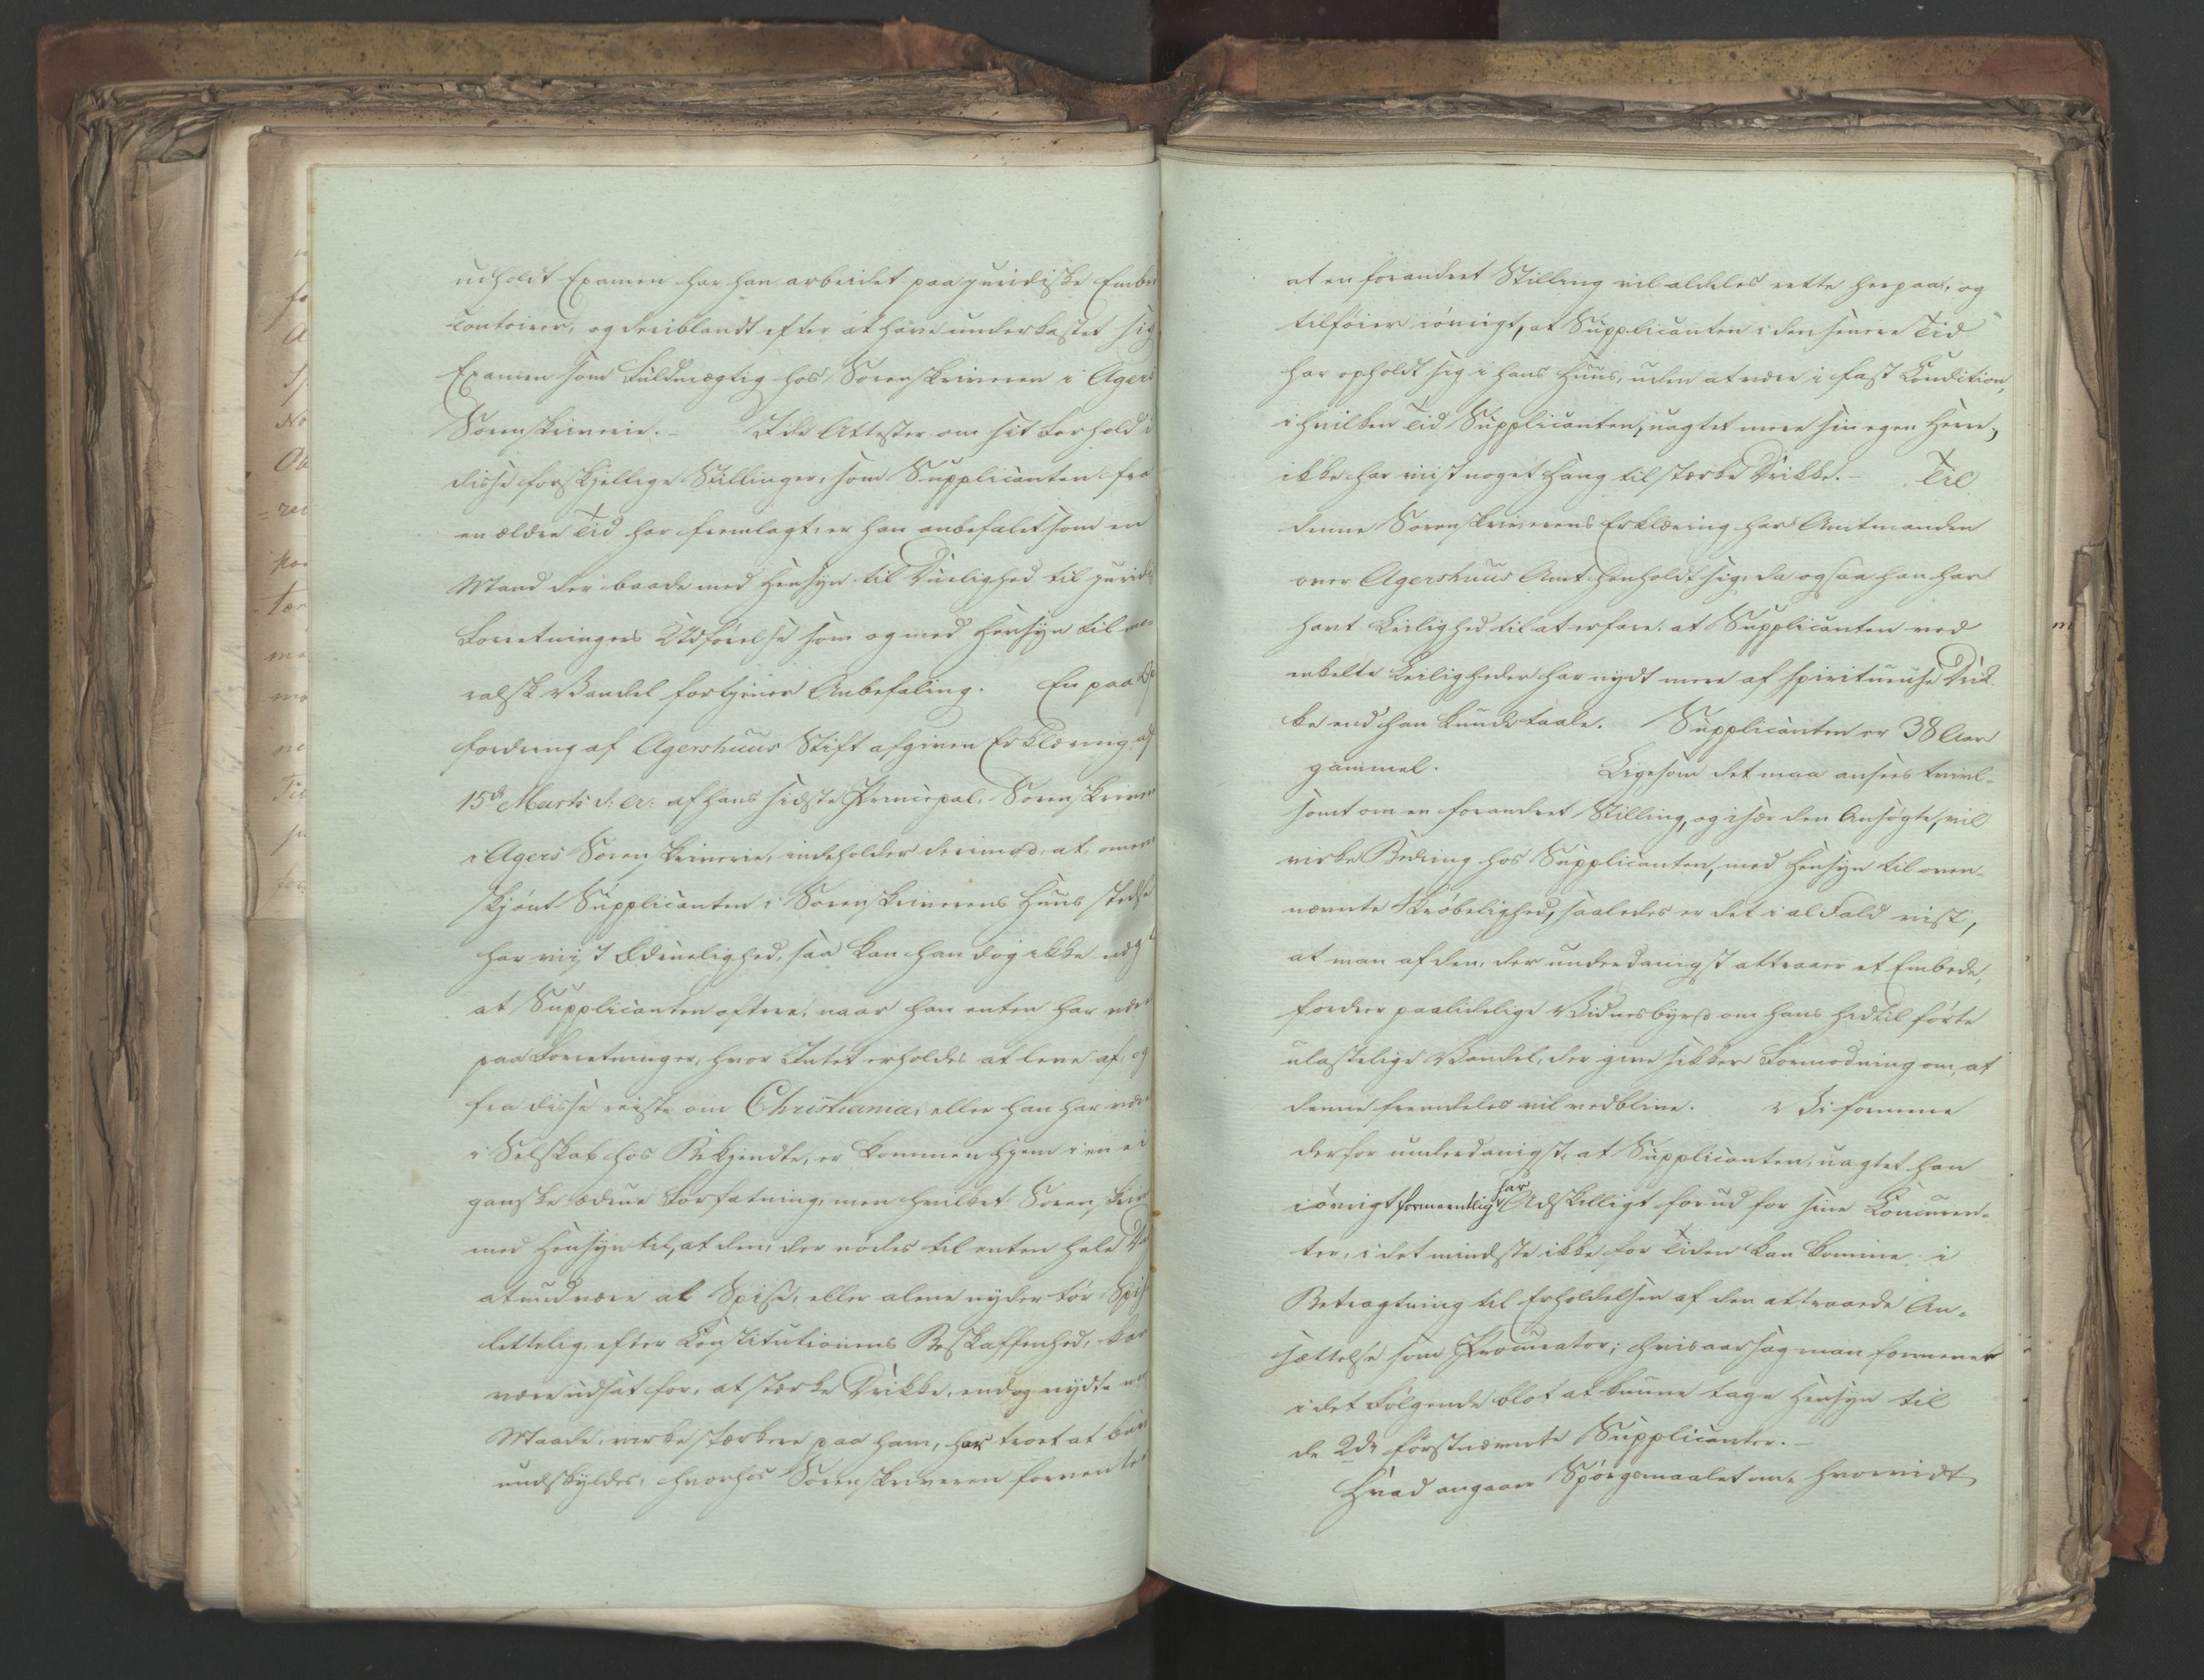 udholdt Examen har han arbeidet paa juridiske Embe
contoirer, og deriblandt efter at have underkastet sig
Examen som Fuldmægtig hos Sorenskriveren i Agers
Sorenskriverie. – I de Attester om sit Forhold i
disse forskjellige Stillinger, som Supplicanten fra
en ældre Tid har fremlagt, er han anbefalet som en
Mand der baade med Hensyn til Duelighed til juridi
Forretningers Udførelse som og med Hensyn til mo-
ralsk Vandel fortjener Anbefaling. En paa
fordring af Agershuus Stift afgiven Erklæring af
15de Marts d: A: af hans sidste Principal, Sorenskriver
i Agers Sorenskriverie, indeholder derimod, at, omend
skjønt Supplicanten i Sorenskriverens Huus stedse
har viist Ædruelighed, saa kan han dog ikke nægt
at Supplicanten oftere, naar han enten har vær
paa Forretninger, hvor Intet erholdes at leve af, og
fra disse reiste om Christiania, eller han har vær
i Selskab hos Bekjendte, er kommen hjem i en ei
ganske ædrue Forfatning, men hvilket Sorenskriv
med Hensyn til, at den, der nødes til enten hele Da
at undvære al Spise, eller alene nyder tør Spise
lettelig, efter Constitutionens Beskaffenhed, kan
være udsat for, at stærke Drikke, endog nydte m
Maade, virke stærkere paa ham, har troet at burd
undskyldes, hvorhos Sorenskriveren forventer
at en forandret Stilling vil aldeles rette herpaa, og
tilføier iøvrigt, at Supplicanten i den senere Tid
har opholdt sig i hans Huus, uden at være i fast Condition,
i hvilken Tid Supplicanten, uagtet mere sin egen Herre,
ikke har viist noget Hang til stærke Drikke. – Til
denne Sorenskriverens Erklæring har Amtmanden
over Agershuus Amt henholdt sig, da ogsaa han har
havt Leilighed til at erfare, at Supplicanten ved
enkelte Leiligheder har nydt mere af spirituøse Drik-
ke end han kunde taale. Supplicanten er 38 Aar
gammel. Ligesom det maa ansees tvivl-
somt om en forandret Stilling, og især den Ansøgte, vil
virke Bedring hos Supplicanten, med Hensyn til oven-
nævnte Skrøbelighed, saaledes er det i al Fald vist,
at man af den, der underdanigst attraaer et Embede,
fordrer paalidelige Vidnesbyrd om hans hidtil førte
ulastelige Vandel, der give sikker Formodning om, at
denne fremdeles vil vedblive. Vi formene
derfor underdanigst, at Supplicanten, uagtet han
iøvrigt formeentlig har Adskilligt forud for sine Concurren-
ter, i det mindste ikke for Tiden kan komme i
Betragtning til Erholdelsen af den attraaede An-
sættelse som Procurator; hvisaarsag man formener
i det Følgende blot at kunne tage Hensyn til
de 2de førstnævnte Supplicanter. –
Hvad angaaer Spørgsmaalet om, hvorvidt